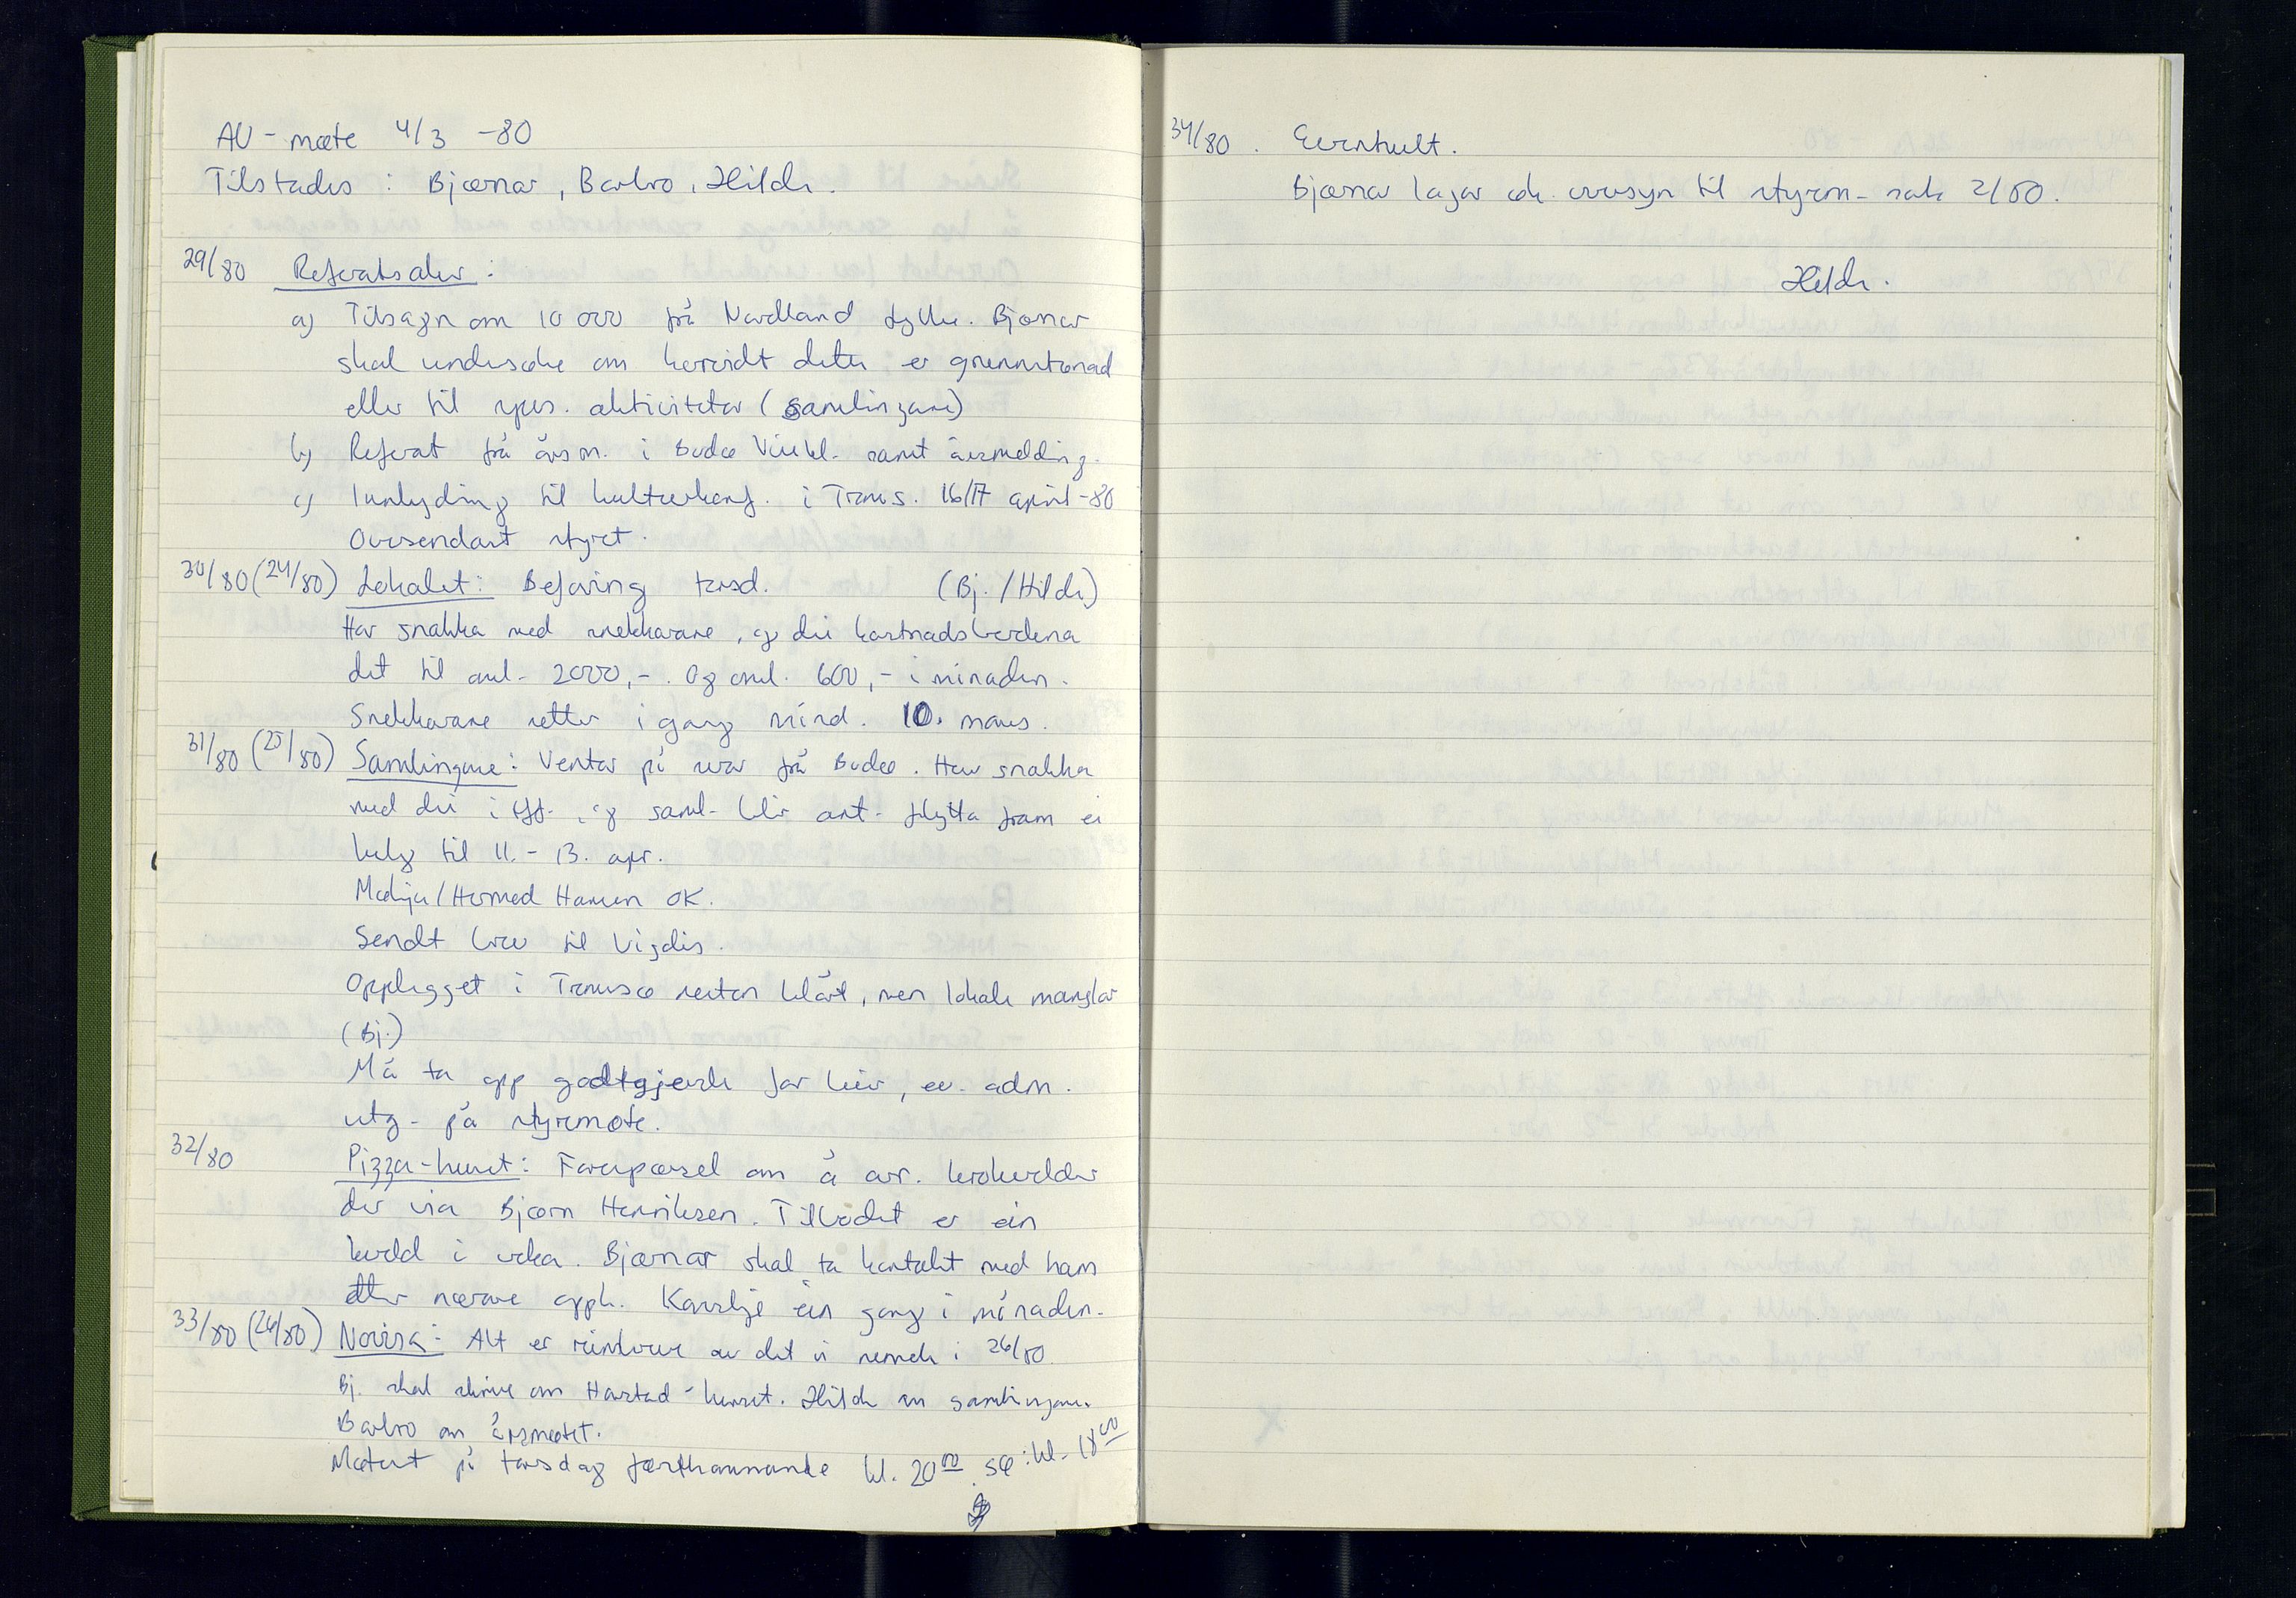 AU-møte 4/3 -80
Tilstades : Bjørnar, Barbro, Hilde.
29/80 Referatsaker :
a) Tilsagn om 10 000 frå Nordland fylke. Bjørnar
skal undersøke om hervidt dette er grunnstønad
eller til spes. aktiviteter (samlingane)
b) Referat frå årsm. i Bodø Visekl. samt årsmelding.
c) Innbyding til kulturkonf. i Troms. 16/17 april -80
Oversendast styret.
30/80 (24/80) Lokalet : Befaring torsd. (Bj. / Hilde)
Har snakka med snekkarane, og dei kostnadsberekna
det til oml. 2000,-. Og oml. 600,- i månaden.
Snekkarane setter i gang månd. 10. mars.
31/80 (25/80) Samlingane : Ventar på svar frå Bodø. Har snakka
med dei i tff. og saml. blir ant. flytta fram ei
helg til 11. - 13. apr.
Medija / Hermod Hansen OK.
Sendt brev til Vigdis.
Opplegget i Tromsø nesten klårt, men lokale manglar
(Bj.)
Må ta opp godtgjerde for leir, ev. adm.
utg. på styremøte.
32/80 Pizza-huset : Førespørsel om å arr. krokveldar
der via Bjørn Henriksen. Tilbodet er ein
kveld i veka. Bjørnar skal ta kontakt med ham
etter nærare oppl. Kanskje ein gong i månaden.
33/80 (26/80) Norisk : Alt er i rute av det vi nemde i 26/80
Bj. skal skrive om Harstad-kurset. Hilde om samlingane.
Barbro om årsmøtet.
Møtest på torsdag førthanmande kl. 20 00. Sø : kl. 18 00
34/80. Eventuelt.
Bjørnar lagar øk. oversyn til styrem. sak 2/80.
Hilde.